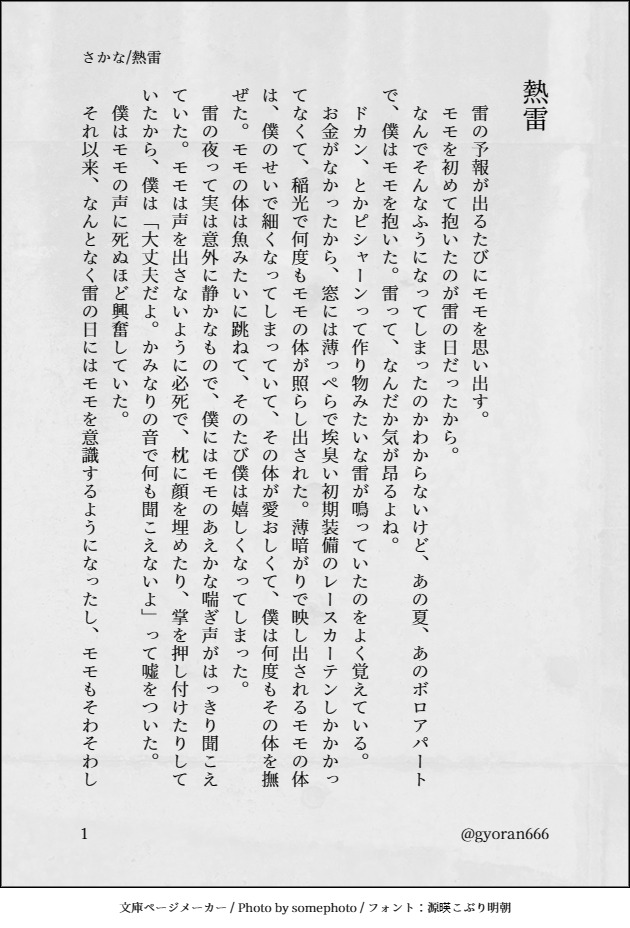 さかな/熱雷
熱雷
雷の予報が出るたびにモモを思い出す。
モモを初めて抱いたのが雷の日だったから。
なんでそんなふうになってしまったのかわからないけど、あの夏、あのボロアパート
で、僕はモモを抱いた。雷って、なんだか気が昂るよね。
ドカン、とかピシャーンって作り物みたいな雷が鳴っていたのをよく覚えている。
お金がなかったから、窓には薄っぺらで埃臭い初期装備のレースカーテンしかかかっ
てなくて、稲光で何度もモモの体が照らし出された。薄暗がりで映し出されるモモの体
は、僕のせいで細くなってしまっていて、その体が愛おしくて、僕は何度もその体を撫
ぜた。モモの体は魚みたいに跳ねて、そのたび僕は嬉しくなってしまった。
雷の夜って実は意外に静かなもので、僕にはモモのあえかな喘ぎ声がはっきり聞こえ
ていた。モモは声を出さないように必死で、枕に顔を埋めたり、掌を押し付けたりして
いたから、僕は「大丈夫だよ。かみなりの音で何も聞こえないよ」って嘘をついた。
僕はモモの声に死ぬほど興奮していた。
それ以来、なんとなく雷の日にはモモを意識するようになったし、モモもそわそわし
1
@gyoran666
文庫ページメーカー / Photo by somephoto / フォント：源暎こぶり明朝